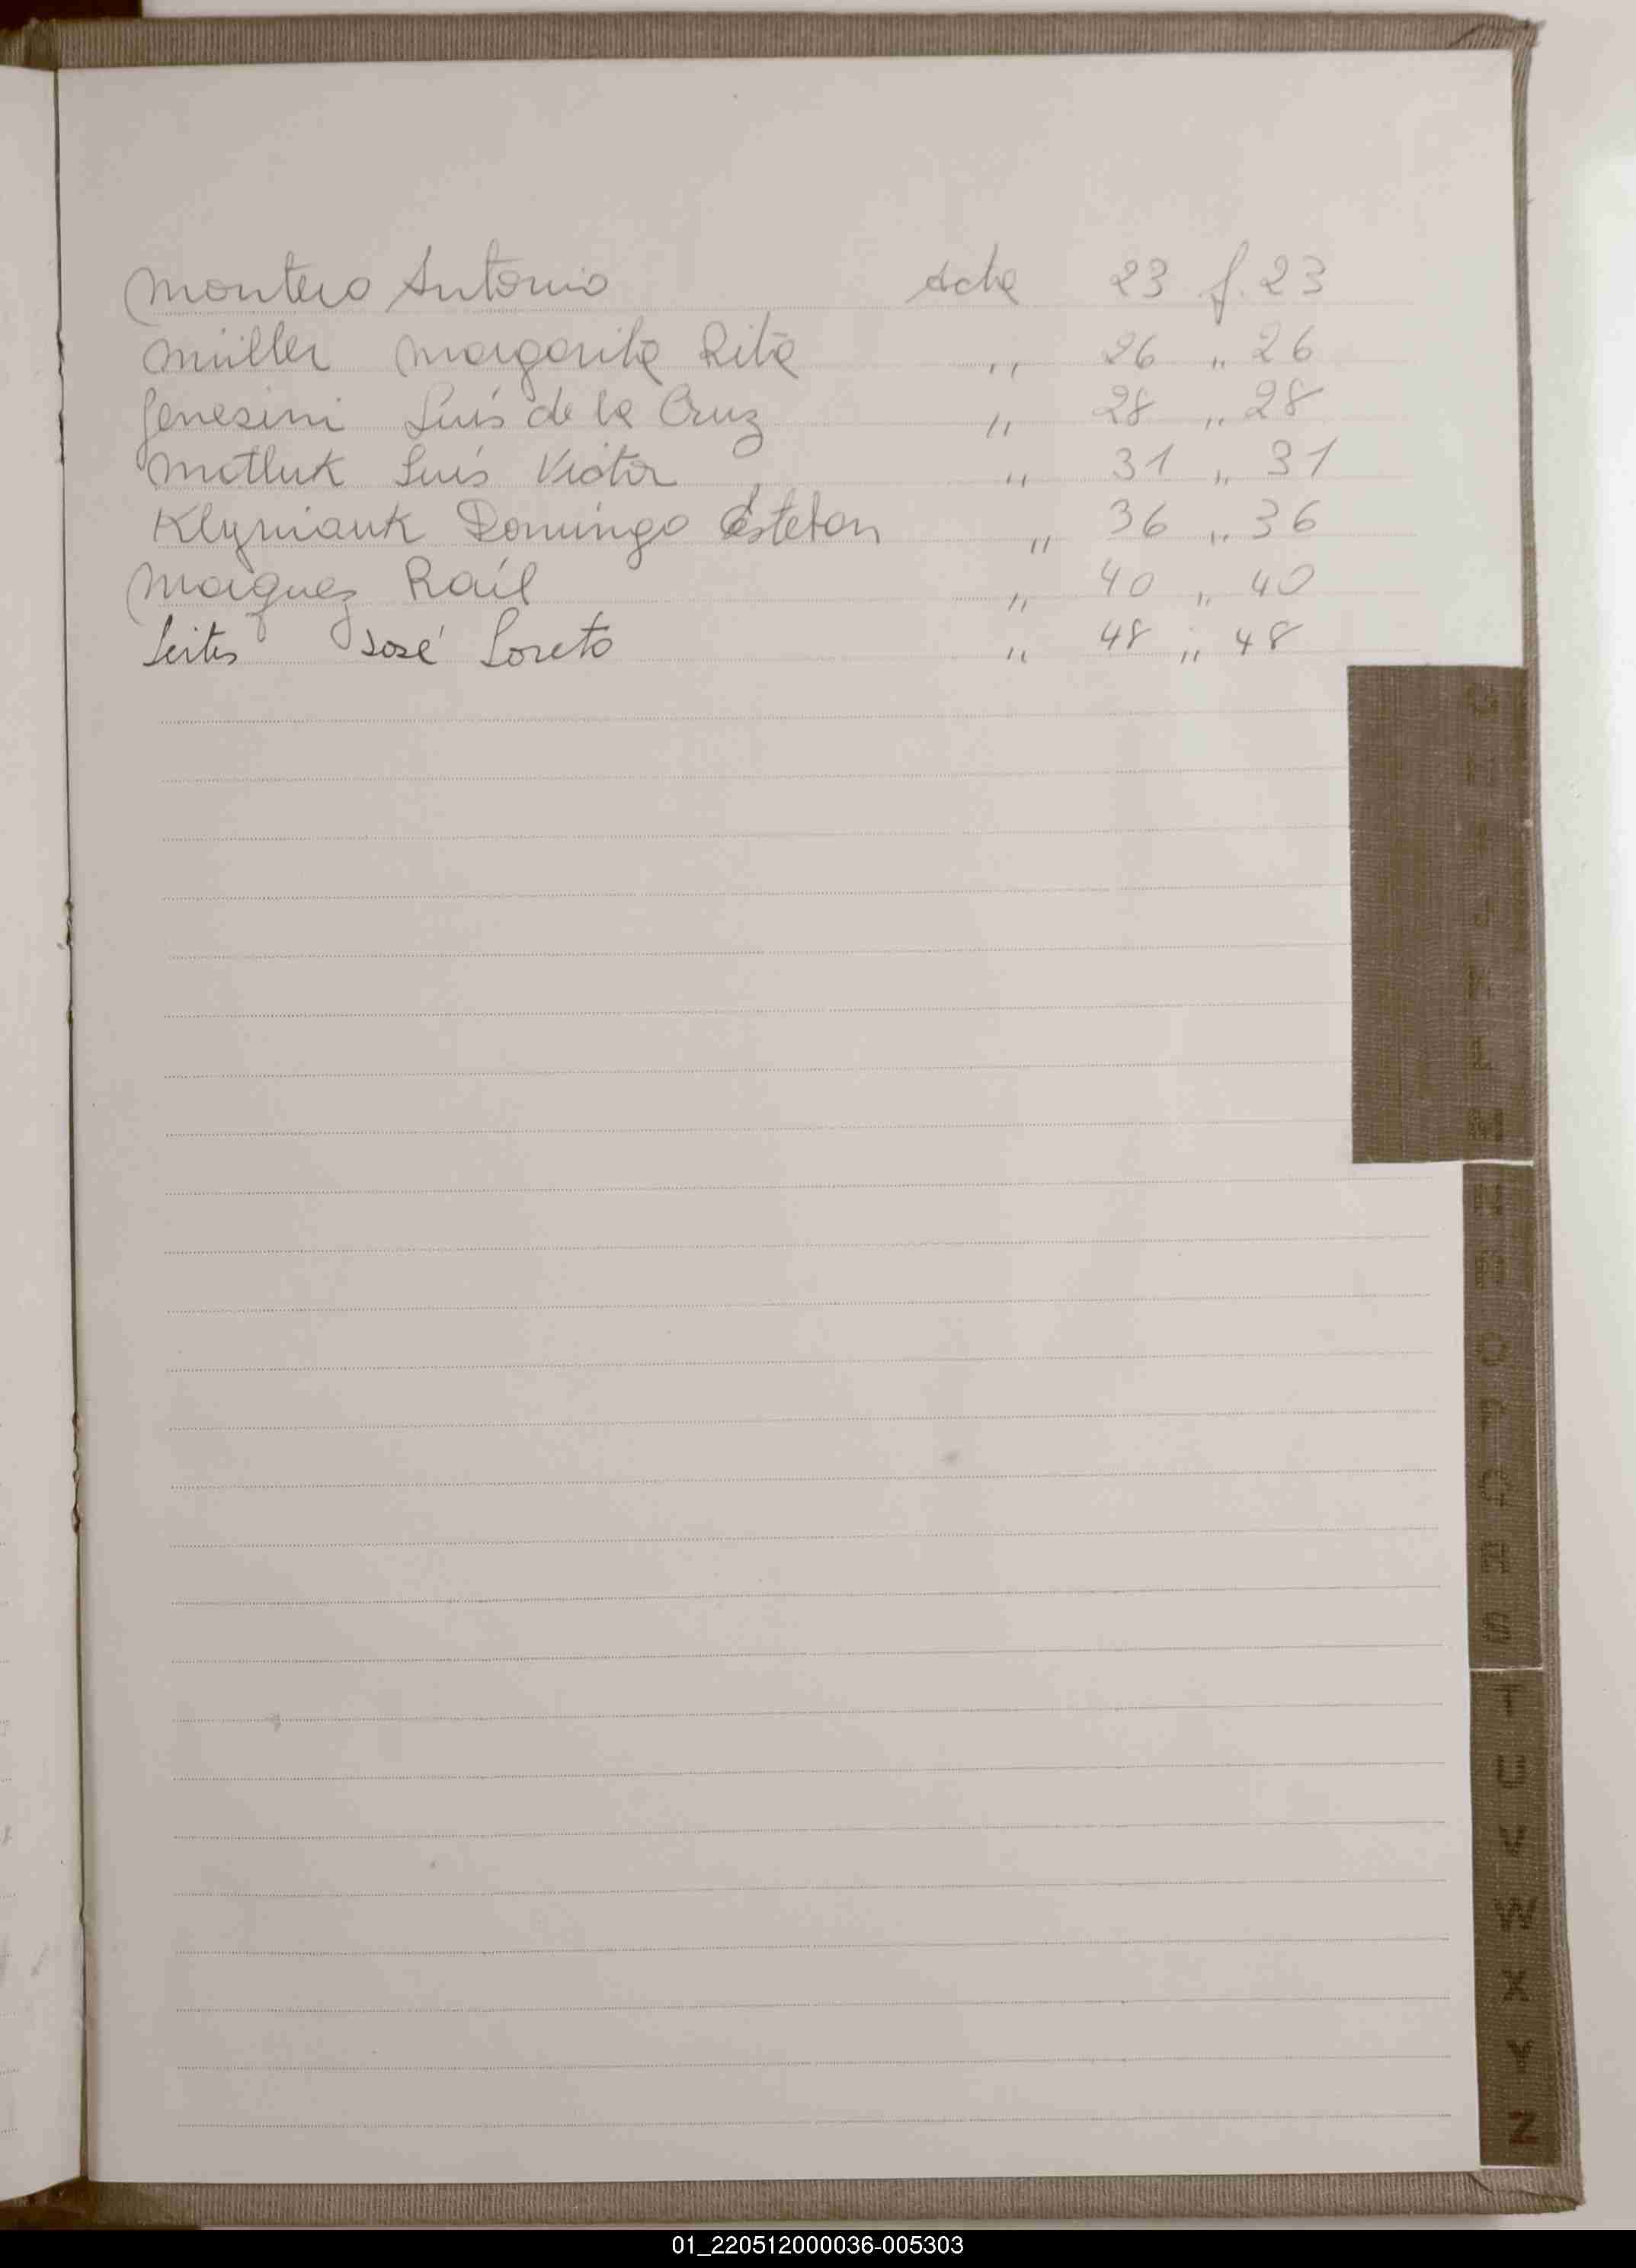 Montero Antonio Acta 23 f. 23
Müller Margarita Rita " 26 " 26
Genesini Luis de la Cruz " 28 " 28
Motluk Luis Victor " 31 " 31
Klymiauk Domingo Esteban " 36 " 36
Marquez Raúl " 40 " 40
Leites José Loreto " 48 " 48
G
H
I
J
K
L
M
N
Ñ
O
P
Q
R
S
T
U
V
W
X
Y
Z
01_220512000036-005303